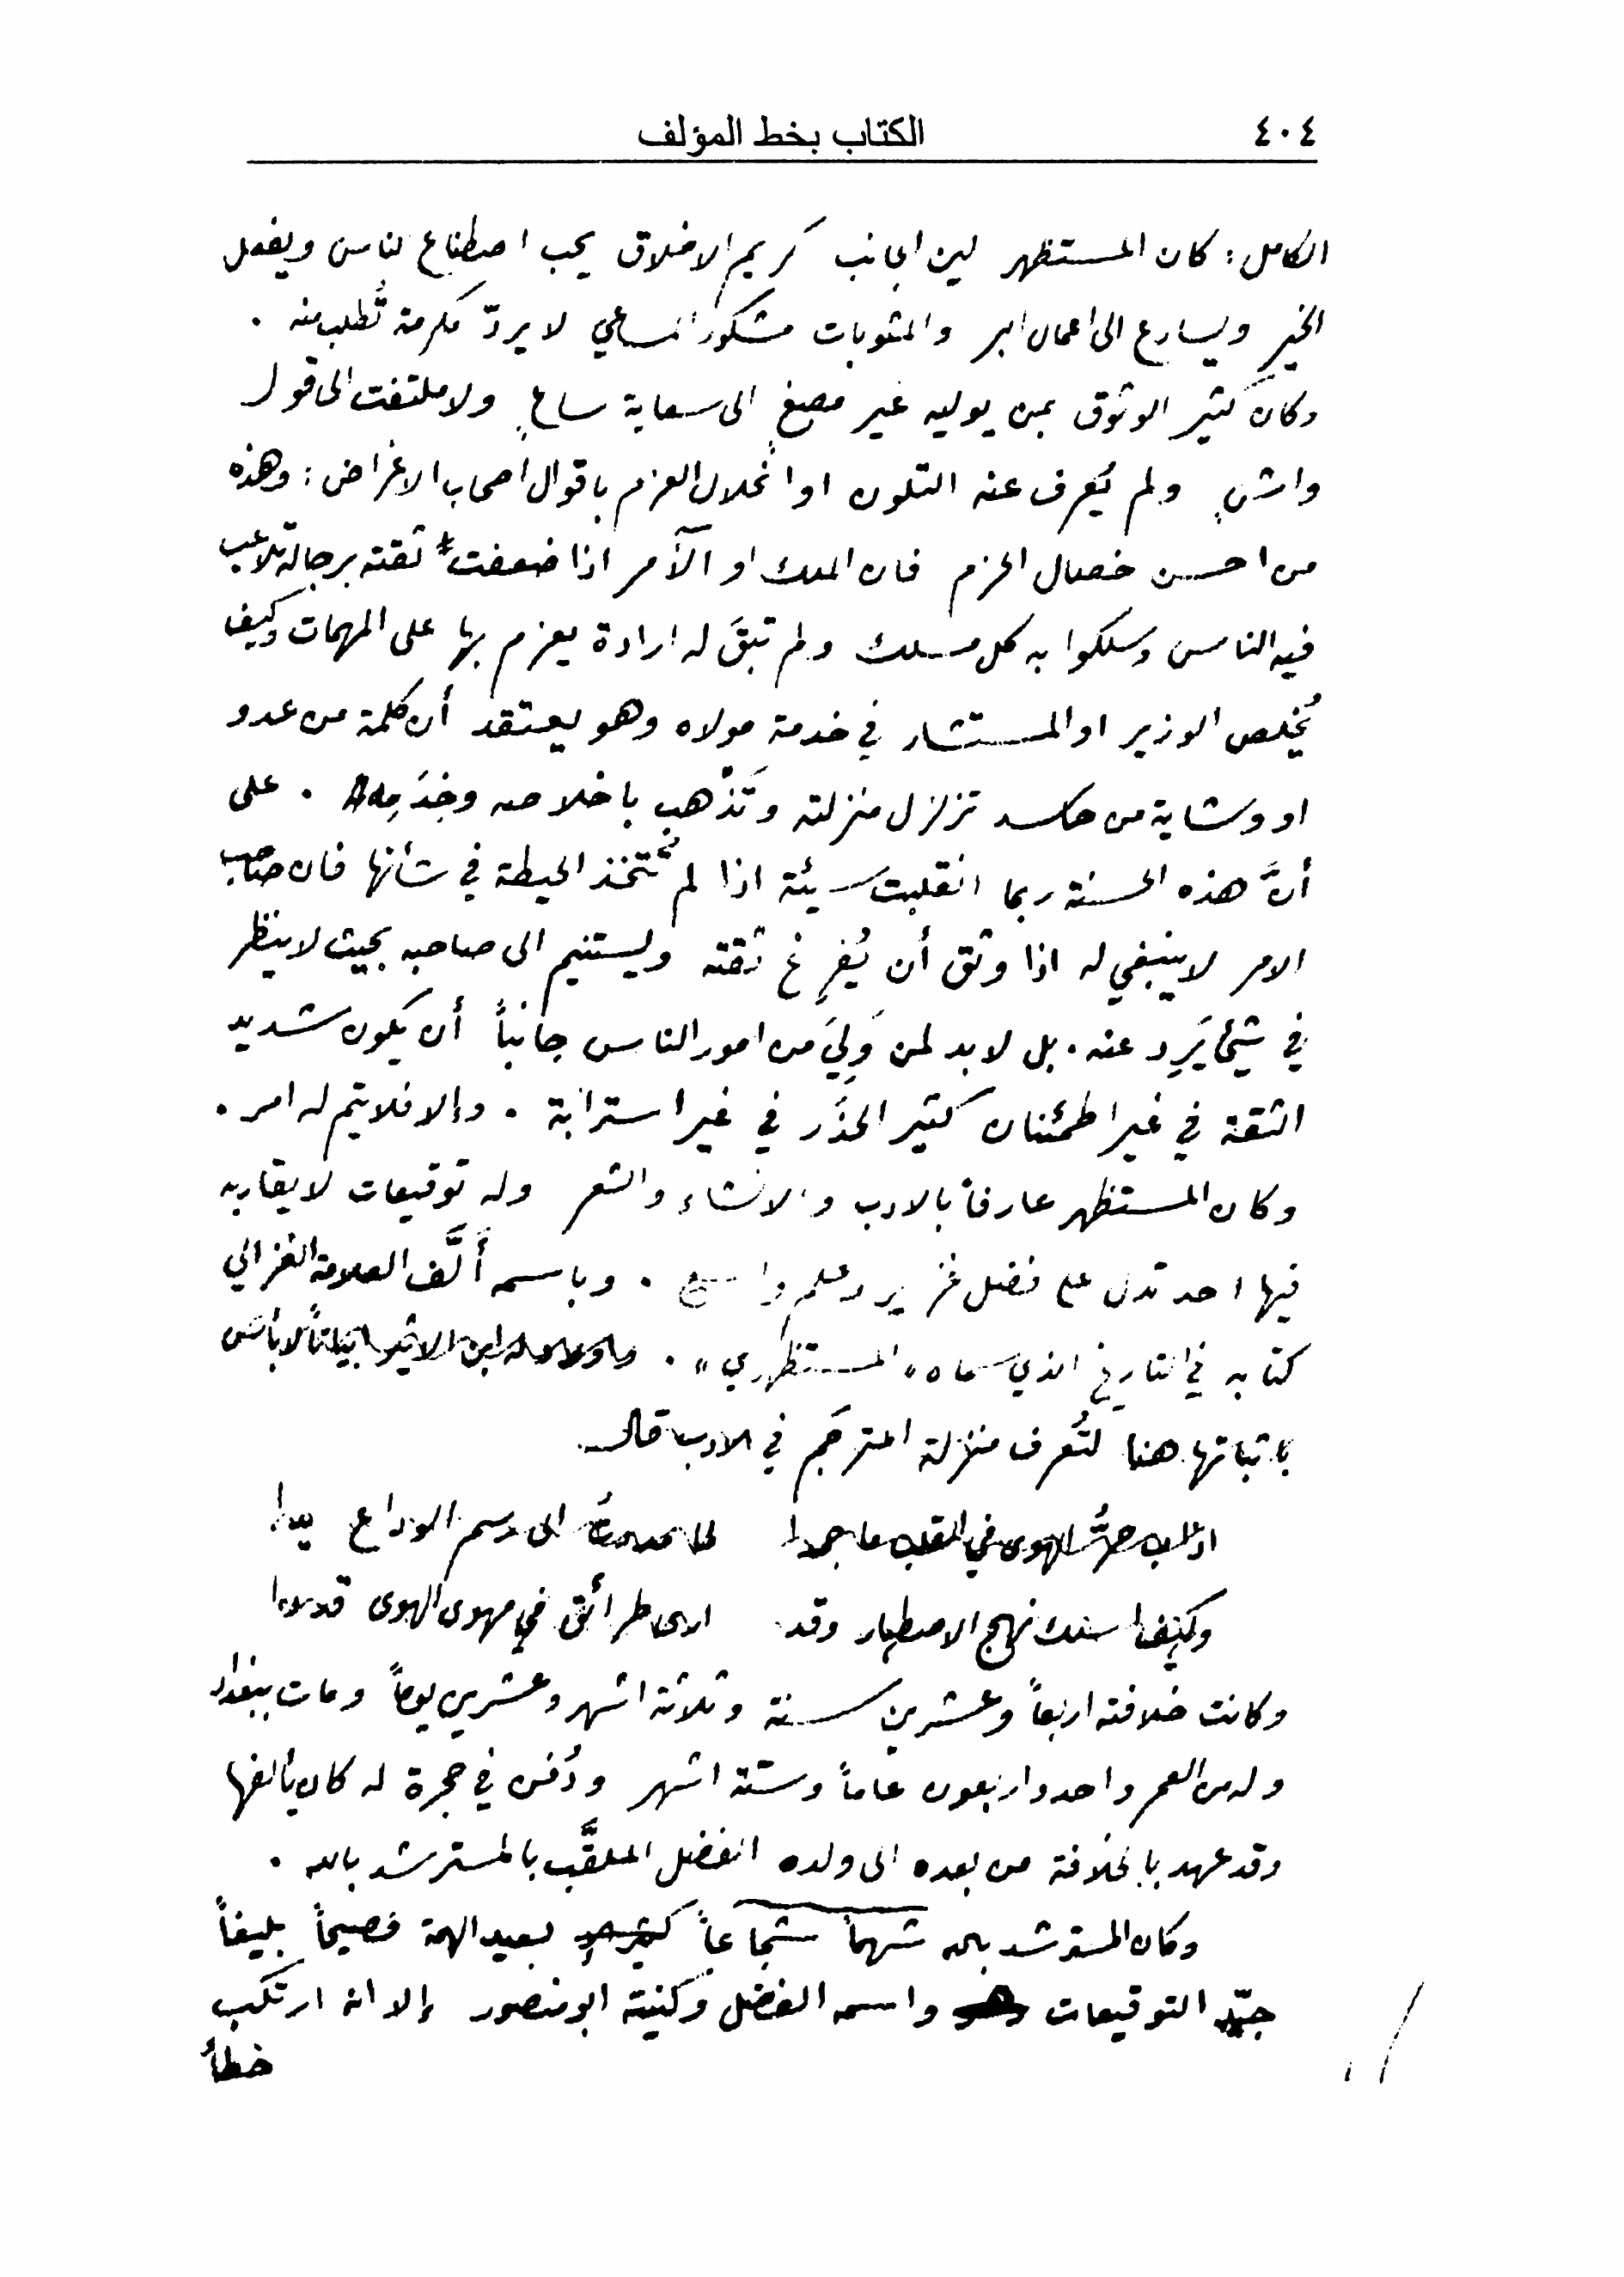 ٤٠٤
الكتاب بخط المؤلف
الكامل : كان المستظهر لين الجانب كريم الاخلاق يحب اصطناع الناس ويفعل
الخير ويسارع الى اعمال البر والمثوبات مشكور المساعي لا يردّ مكرمة تُطلب منه .
وكان كثير الوثوق بمن يوليه غير مصغٍ الى سعاية ساعٍ ولا ملتفت الى قول
واشٍ ولم يُعرف عنه التلون او انحلال العزم باقوال اصحاب الاغراض : وهذه
من احسن خصال الحزم فان الملك او الآمر اذا ضعفت ثقته برجاله تلاعب
فيه الناس وسلكوا به كل مسلك ولم تبقَ له ارادة يعزم بها على المهمات وكيف
يُخلص الوزير او المستشار في خدمة مولاه وهو يعتقد أن كلمة من عدو
او وشاية من حاسد تزلزل منزلته وتَذْهب باخلاصه وخِدَمِه . على
أنَّ هذه الحسنة ربما انقلبت سيئة اذا لم تتخذ الحيطة في شأنها فان صاحب
الامر لا ينبغي له اذا وثق أن يُفرِغ ثقته ويستنيم الى صاحبه بحيث لا ينظر
في شيئ يَرِد عنه . بل لا بد لمن وَلِيَ من امور الناس جانباً أن يكون شديد
الثقة في غير اطمئنان كثير الحذَر في غير استرابة . وإلا فلا يتم له امر .
وكان المستظهر عارفاً بالادب والانشاء والشعر وله توقيعات لا يقاربه
فيها احد تدل على فضل غزير وعلم واسع . وباسمه أَلَّف العلامة الغزالي
كتابه في التاريخ الذي سماه « المستظهري » . ابن الاثير ابياتاً لا بأس
باثباتها هنا لتُعرف منزلة المترجَم في الادب قال
حرُّ الهوى في القلب ما جمدا لما الى رسم الوداع يدا
وكيف اسلك نهج الاصطبار وقد ارى طرائق في مهوى الهوى قددا
وكانت خلافته اربعاً وعشرين سنة وثلاثة اشهر وعشرين يوماً ومات ببغداد
وله من العمر واحد واربعون عاماً وستة اشهر ودُفن في حجرة له كان يألفها
وقد عهد بالخلافة من بعده الى ولده الفضل الملقَّب بالمسترشد بالله .
وكان المسترشد بالله شهماً شجاعاً بعيد الهمة فصيحاً بليغاً
جيّد التوقيعات واسمه الفضل وكنيته ابو منصور إلا انه ارتكب
خطأً